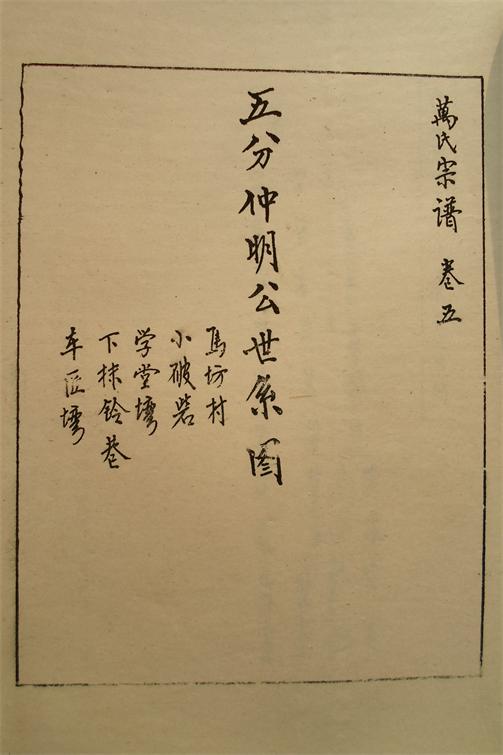 萬氏宗谱 卷五
五分仲明公世系图
馬坊村
小破砦
学堂塆
下抹铃巷
车匠塆